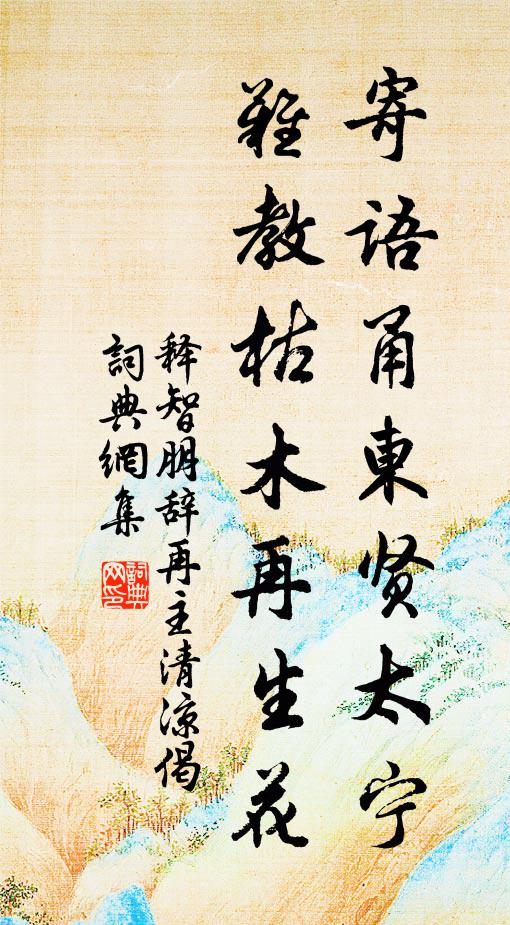 寄语甬東贤太宁
難教枯木再生花
释智朋辞再主清凉偈
詞典網集
詞典网印